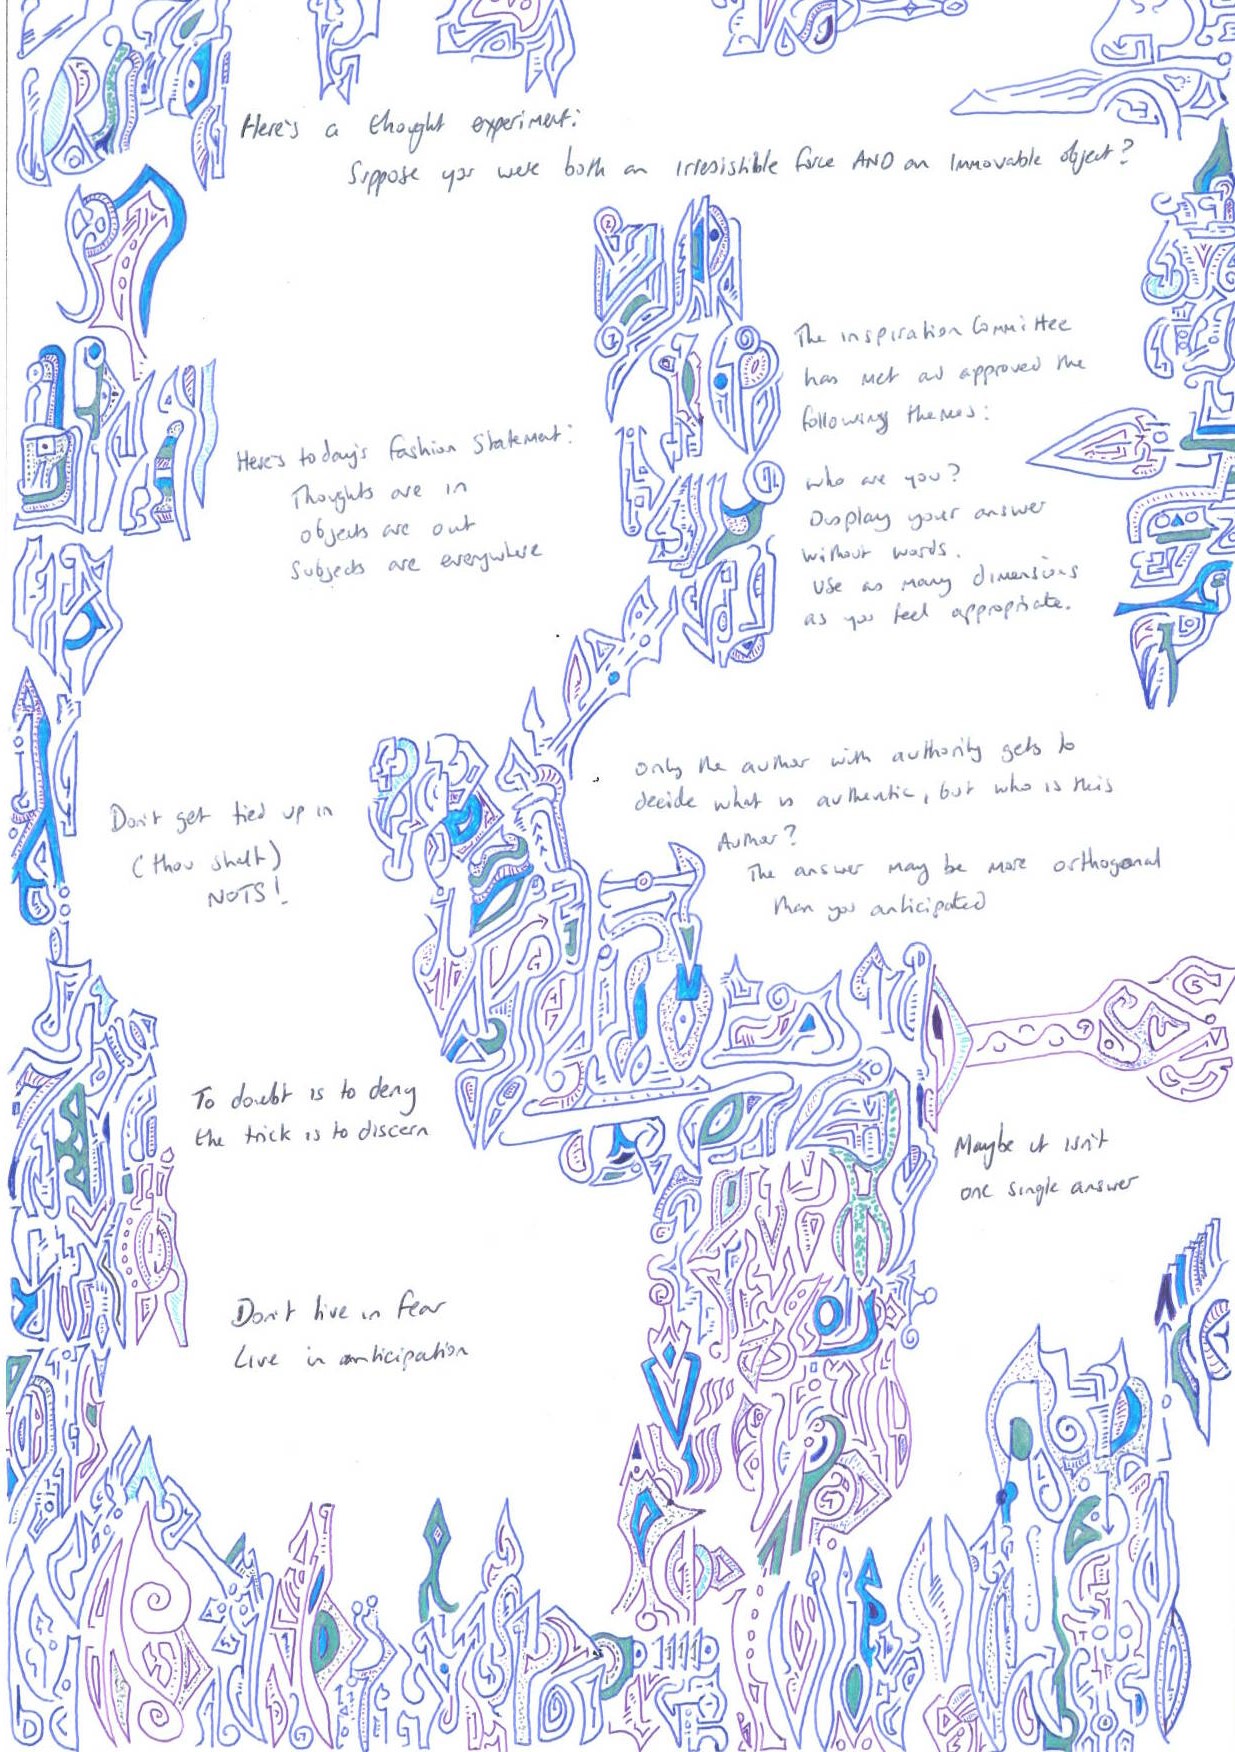 Here's a thought experiment:
Suppose you were both an irresistible force AND an immovable object?
The inspiration Committee
has met and approved the
following themes:
who are you?
Display your answer
without words.
Use as many dimensions
as you feel appropriate.
Here's today's Fashion Statement:
Thoughts are in
objects are out
Subjects are everywhere
Only the author with authority gets to
decide what is authentic, but who is this
Author?
The answer may be more orthogonal
than you anticipated
Don't get tied up in
(thou shalt)
NOTS!
To doubt is to deny
the trick is to discern
Maybe it isn't
one single answer
Don't live in fear
Live in anticipation